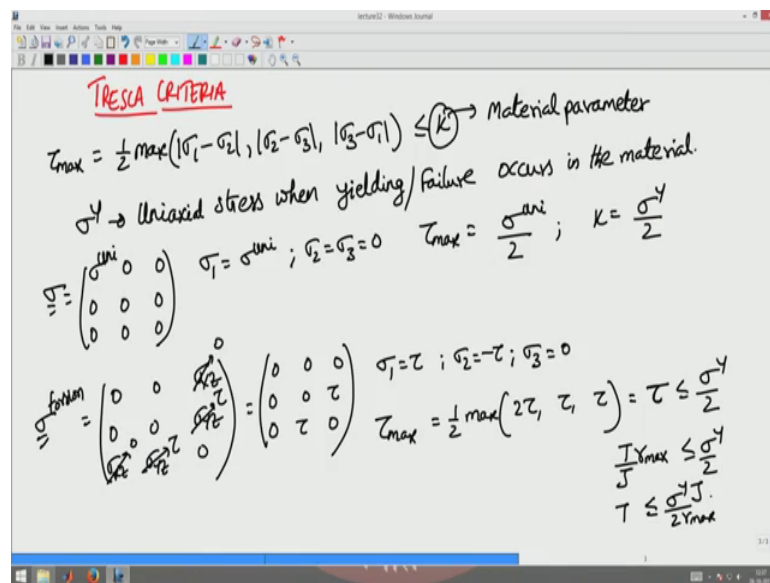 lecture32 - Windows Journal
File Edit View Insert Actions Tools Help
Page Width
TRESCA CRITERIA
τmax = 1/2 max(|σ1-σ2|, |σ2-σ3|, |σ3-σ1|) ≤ K → Material parameter
σ^Y → Uniaxial stress when yielding/failure occurs in the material.
σ = (σ^uni 0 0; 0 0 0; 0 0 0) σ1 = σ^uni ; σ2 = σ3 = 0 τmax = σ^uni/2 ; K = σ^Y/2
σ^torsion = (0 0 σxz→0; 0 0 σyz→τ; σxz→0 σyz→τ 0) = (0 0 0; 0 0 τ; 0 τ 0) σ1 = τ ; σ2 = -τ ; σ3 = 0
τmax = 1/2 max(2τ, τ, τ) = τ ≤ σ^Y/2
T/J rmax ≤ σ^Y/2
T ≤ σ^Y J/2rmax.
1/1
12:37